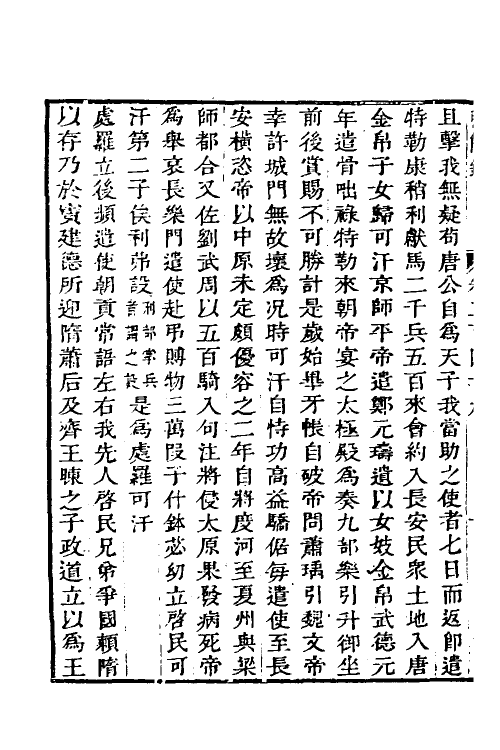 且擊我無疑苟唐公自爲天子我當助之使者七日而返卽遣
特勒康稍利獻馬二千兵五百來會約入長安民衆土地入唐
金帛子女歸可汗京師平帝遣鄭元璹遺以女妓金帛武德元
年遣骨咄祿特勒來朝帝宴之太極殿爲奏九部樂引升御坐
前後賞賜不可勝計是歲始畢牙帳自破帝問蕭瑀引魏文帝
幸許城門無故壞爲况時可汗自恃功高益驕倨每遣使至長
安橫恣帝以中原未定頗優容之二年自將度河至夏州與梁
師都合又佐劉武周以五百騎入句注將侵太原果發病死帝
爲舉哀長樂門遣使赴弔賻物三萬段子什鉢苾幼立啓民可
汗第二子俟利弗設別部掌兵者謂之設是爲處羅可汗
處羅立後頻遣使朝貢常語左右我先人啓民兄弟爭國賴隋
以存乃於竇建德所迎隋蕭后及齊王暕之子政道立以爲王